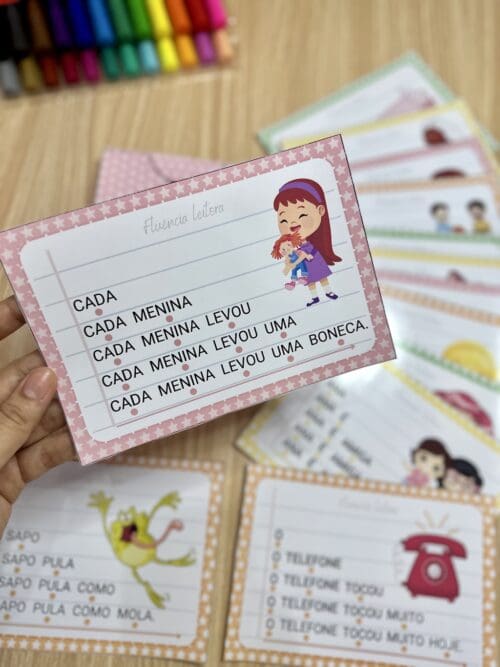 Fluência leitora
CADA
CADA MENINA
CADA MENINA LEVOU
CADA MENINA LEVOU UMA
CADA MENINA LEVOU UMA BONECA.
SAPO
SAPO PULA
SAPO PULA COMO
SAPO PULA COMO MOLA.
Fluência leitora
O
O TELEFONE
O TELEFONE TOCOU
O TELEFONE TOCOU MUITO
O TELEFONE TOCOU MUITO HOJE.